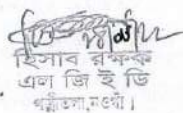 হিসাব রক্ষক
এল জি ই ডি
পত্নীতলা, নওগাঁ।